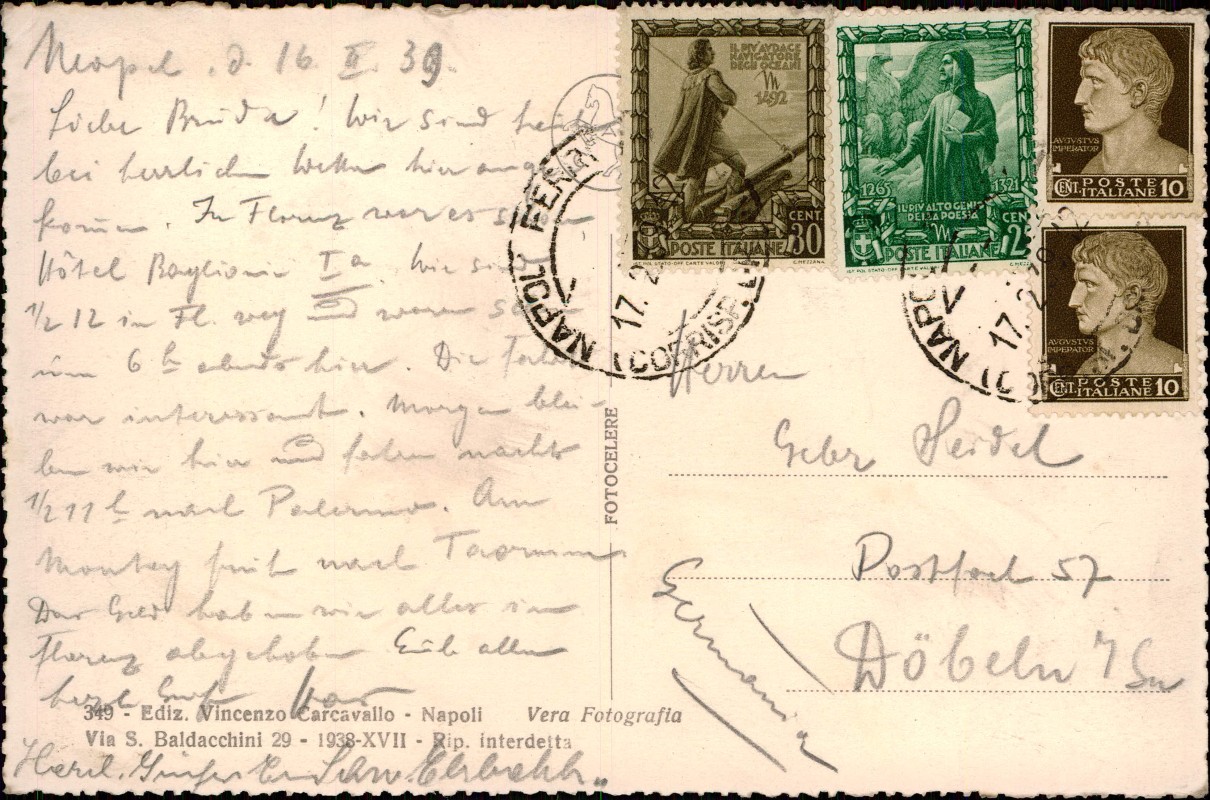 Neapel, d. 16. II. 39.
Liebe Brüder! Wir sind heute
bei herrlichem Wetter hier ange
kom̄en. In Florenz war es schön
Hôtel Baglioni Ia. Wir sind
1/2 12 in Fl. weg und waren schon
um 6 h abends hier. Die Fahrt
war interessant. Morgen blei-
ben wir hier und fahren nachts
1/2 11 h nach Palermo. Am
Montag früh nach Taormina
Das Geld haben wir alles in
Florenz abgehoben. Euch allen
herzl. Grüße
349 - Ediz. Vincenzo Carcavallo - Napoli Vera Fotografia
Via S. Baldacchini 29 - 1938-XVII - Rip. interdetta
Herzl. Grüße
FOTOCELERE
IL RIV AVDACE
NAVIGATORE
DEGLI OCEANI
1492
CENT. 30
POSTE ITALIANE
IST. POL. STATO-OFF. CARTE VALORI C. MEZZANA
1265 1321
IL RIV ALTO GENIO
DELLA POESIA
CENT. 2
POSTE ITALIANE
IST. POL. STATO-OFF. CARTE VALORI C. MEZZ
AVGVSTVS
IMPERATOR
CENT. POSTE ITALIANE 10
AVGVSTVS
IMPERATOR
CENT. POSTE ITALIANE 10
NAPOLI FERR
17. 2
CORRISP.
NAPOLI
17. 2
Herren
Gebr Heidel
Postfach 57
Döbeln / Sa
Germania